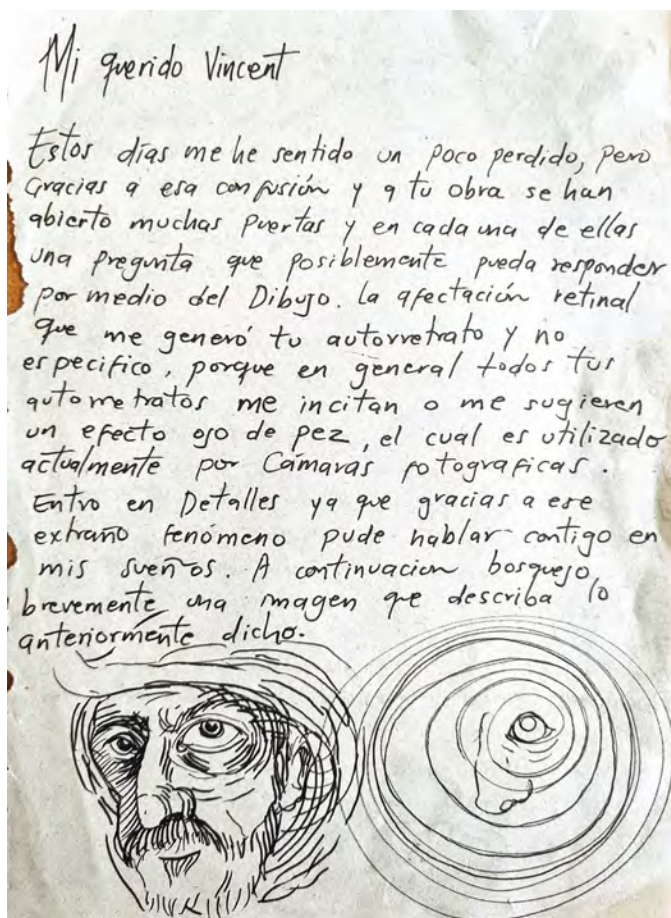 Mi querido Vincent
Estos días me he sentido un poco perdido, pero
Gracias a esa confusión y a tu obra se han
abierto muchas puertas y en cada una de ellas
una pregunta que posiblemente pueda responder
por medio del Dibujo. La afectación retinal
que me generó tu autorretrato y no
especifico, porque en general todos tus
autorretratos me incitan o me sugieren
un efecto ojo de pez, el cual es utilizado
actualmente por Cámaras fotograficas.
Entro en Detalles ya que gracias a ese
extraño fenómeno pude hablar contigo en
mis sueños. A continuacion bosquejo
brevemente una imagen que describa lo
anteriormente dicho.